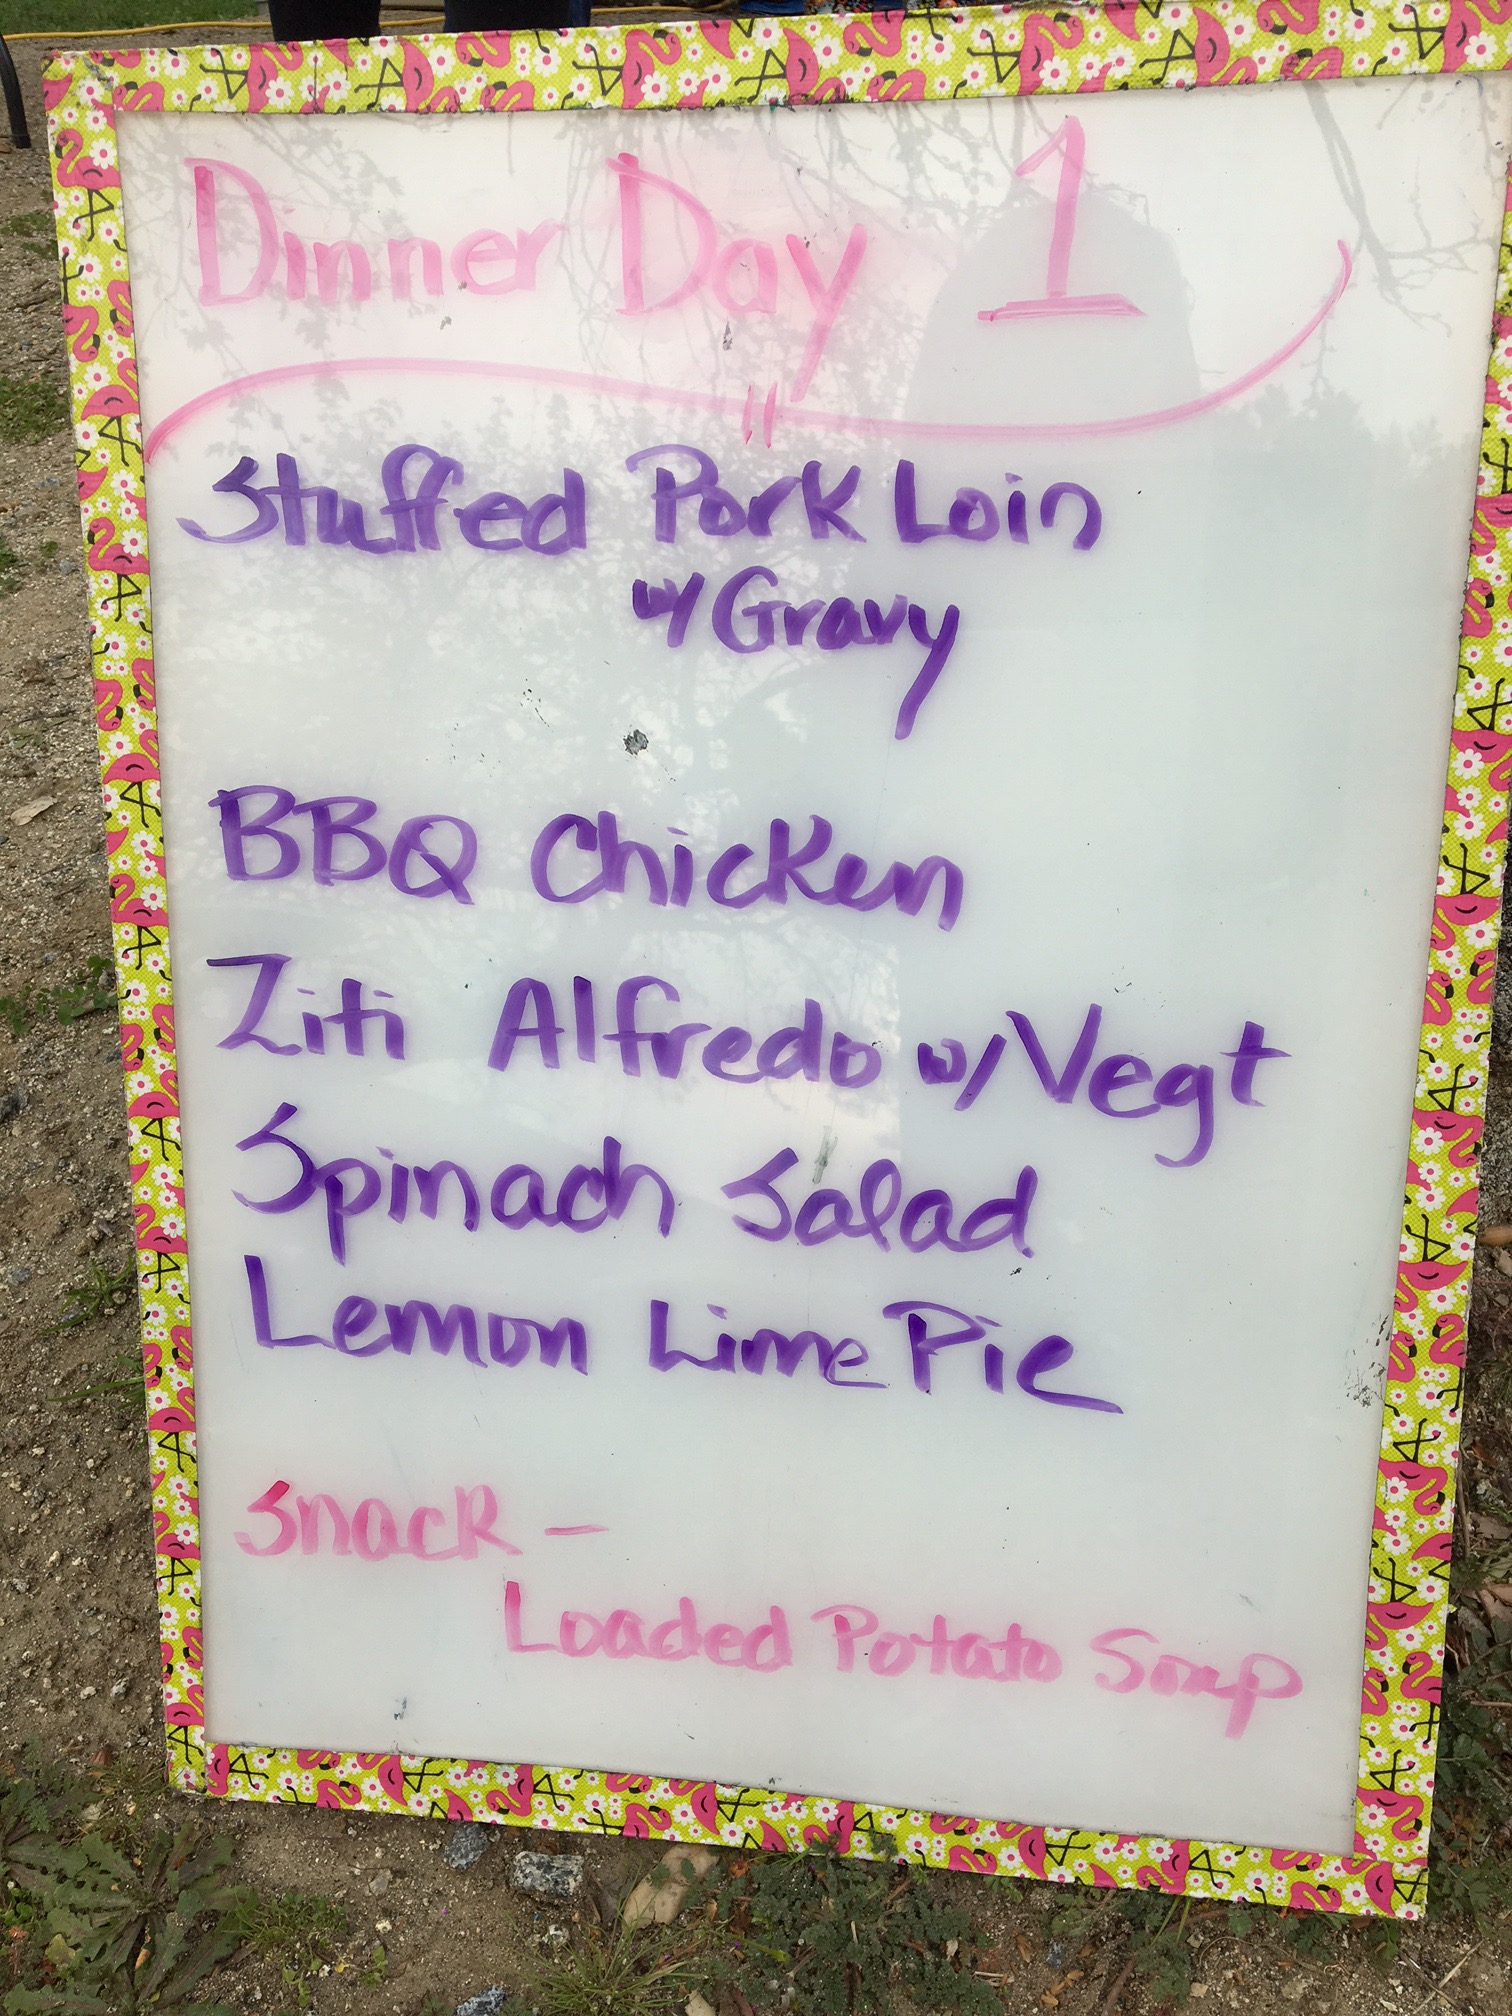 Dinner Day 1
Stuffed Pork Loin
w/ Gravy
BBQ Chicken
Ziti Alfredo w/ Vegt
Spinach Salad
Lemon Lime Pie
Snack -
Loaded Potato Soup